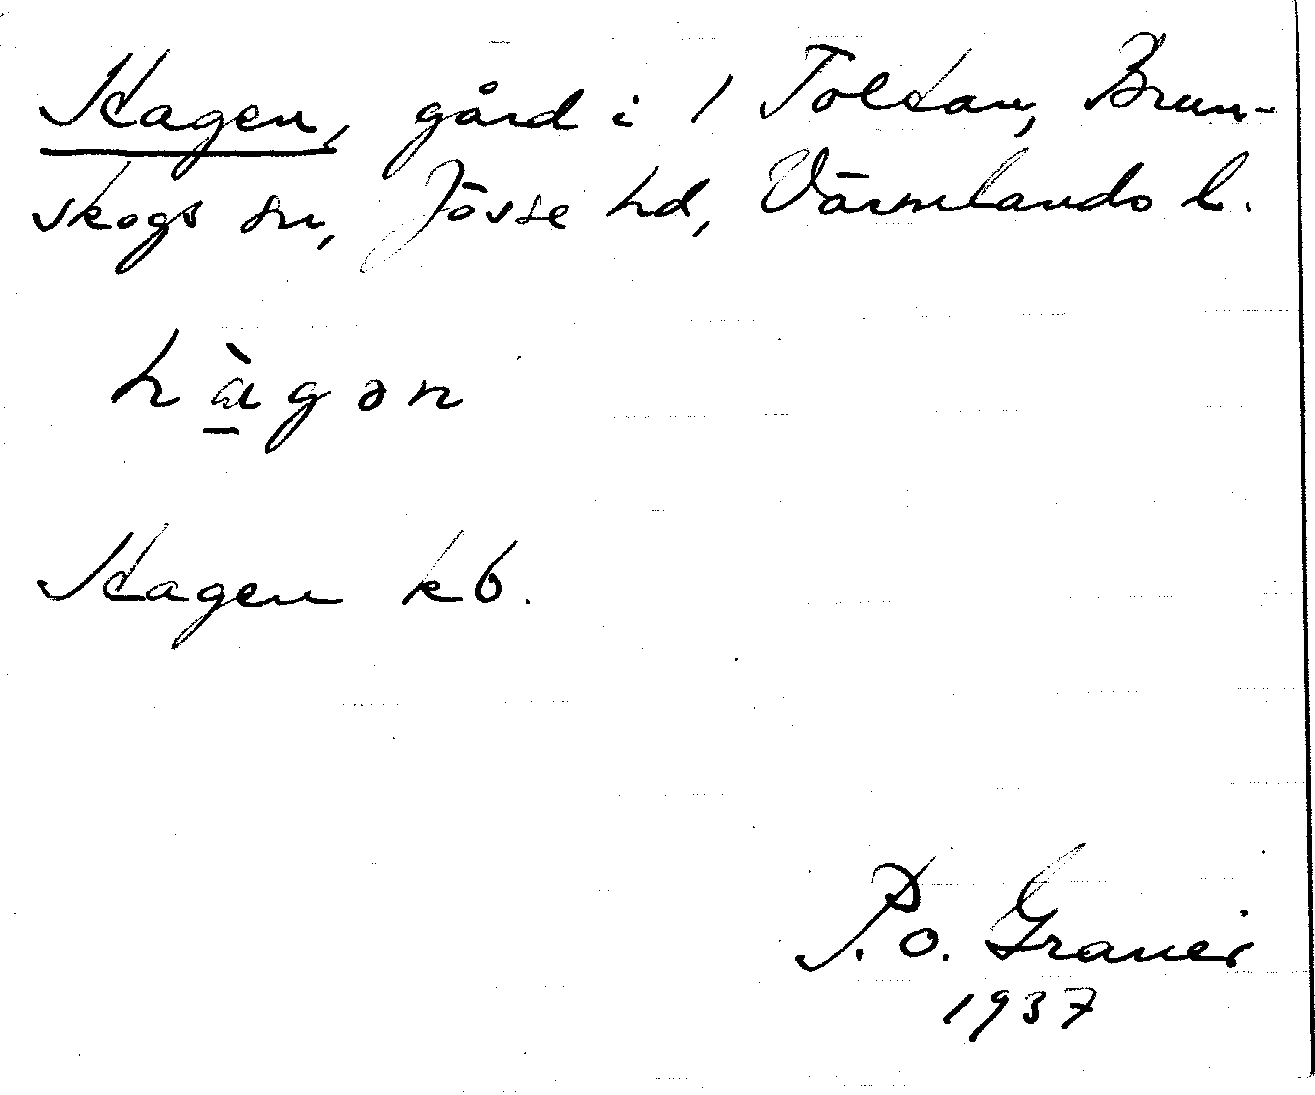 Hagen, gård i 1 Tolkan, Brun-
skogs sn, Jösse hd, Värmlands l.
hàgən
Hagen kb.
P. O. Graner
1937